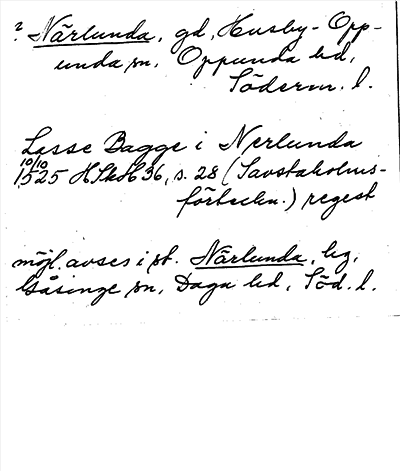 ? Närlunda, gd, Husby-Opp-
unda sn, Oppunda hd,
Söderm. l.
Lasse Bagge i Nerlunda
10/10
1525 HSkH 36, s. 28 (Savstaholms-
förteckn.) regest
möjl. avses i st. Närlunda, by,
Gåsinge sn, Daga hd, Söd. l.